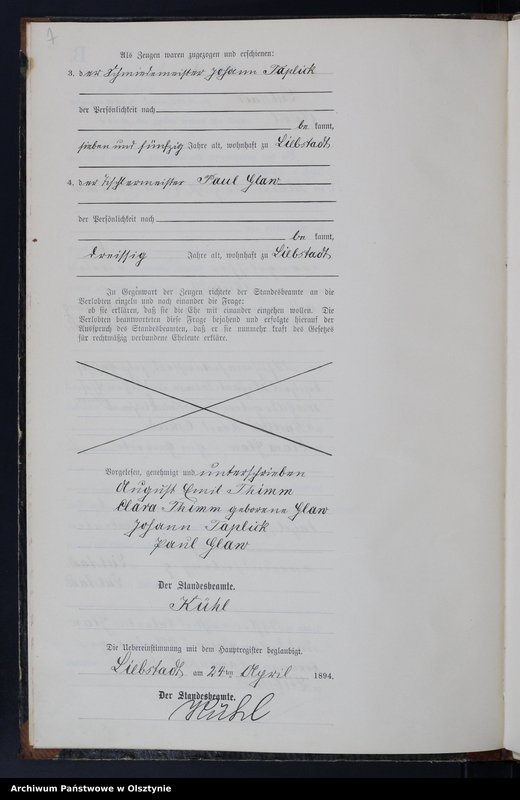 7
Als Zeugen waren zugezogen und erschienen:
3. der Schmiedemeister Johann Taplick
der Persönlichkeit nach
be kannt,
sieben und fünfzig Jahre alt, wohnhaft zu Liebstadt
4. der Tischlermeister Paul Glaw
der Persönlichkeit nach
be kannt,
dreissig Jahre alt, wohnhaft zu Liebstadt
In Gegenwart der Zeugen richtete der Standesbeamte an die
Verlobten einzeln und nach einander die Frage:
ob sie erklären, daß sie die Ehe mit einander eingehen wollen. Die
Verlobten beantworteten diese Frage bejahend und erfolgte hierauf der
Ausspruch des Standesbeamten, daß er sie nunmehr kraft des Gesetzes
für rechtmäßig verbundene Eheleute erkläre.
Vorgelesen, genehmigt und unterschrieben
August Emil Thimm
Clara Thimm geborene Glaw
Johann Taplick
Paul Glaw
Der Standesbeamte.
Kühl
Die Uebereinstimmung mit dem Hauptregister beglaubigt.
Liebstadt am 24ten April 1894.
Der Standesbeamte.
Kühl
Archiwum Państwowe w Olsztynie